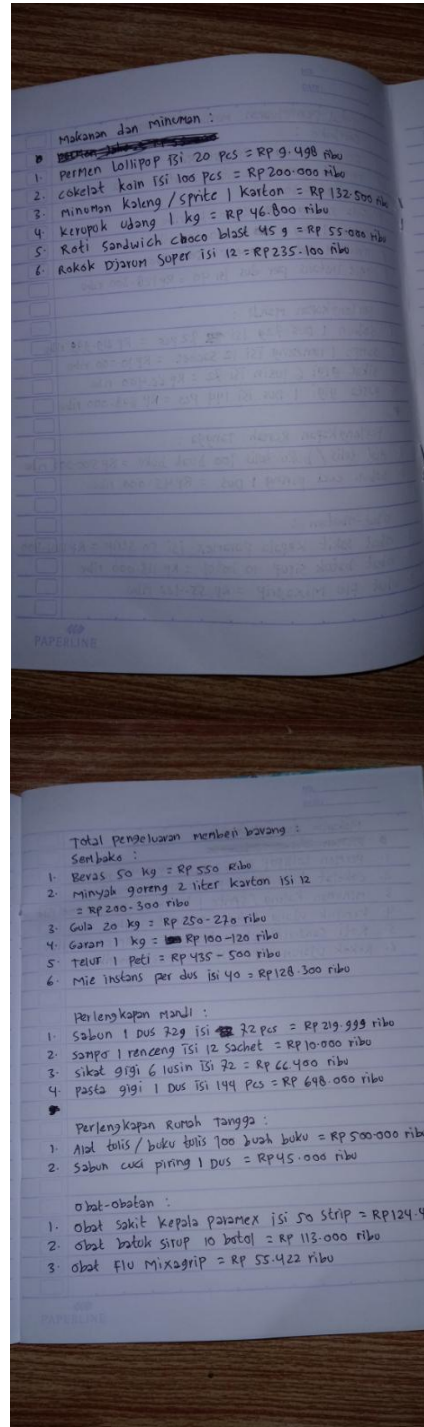 Makanan dan Minuman :
1. Permen Lollipop isi 20 pcs = Rp 9.498 ribu
2. cokelat koin isi 100 pcs = Rp 200.000 ribu
3. minuman kaleng / sprite 1 karton = Rp 132.500 ribu
4. kerupok udang 1 kg = Rp 46.800 ribu
5. Roti Sandwich choco blast 45 g = Rp 55.000 ribu
6. Rokok Djarum Super isi 12 = Rp 235.100 ribu
PAPERLINE
Total Pengeluaran memberi barang :
Sembako :
1. Beras 50 kg = Rp 550 Ribu
2. Minyak goreng 2 liter karton isi 12
= Rp 200-300 ribu
3. Gula 20 kg = Rp 250-270 ribu
4. Garam 1 kg = Rp 100-120 ribu
5. Telur 1 Peti = Rp 435-500 ribu
6. Mie instans per dus isi 40 = Rp 128.300 ribu
Perlengkapan Mandi :
1. Sabun 1 Dus 72g isi 72 pcs = Rp 219.999 ribu
2. sampo 1 renceng isi 12 sachet = Rp 10.000 ribu
3. sikat gigi 6 lusin isi 72 = Rp 66.400 ribu
4. pasta gigi 1 Dus isi 144 Pcs = Rp 648.000 ribu
Perlengkapan Rumah Tangga :
1. Alat tulis / buku tulis 100 buah buku = Rp 500.000 ribu
2. Sabun cuci piring 1 Dus = Rp 45.000 ribu
obat-obatan :
1. obat sakit kepala paramex isi 50 strip = Rp 124.4
2. obat batuk sirup 10 botol = Rp 113.000 ribu
3. obat Flu Mixagrip = Rp 55.422 ribu
PAPERLINE